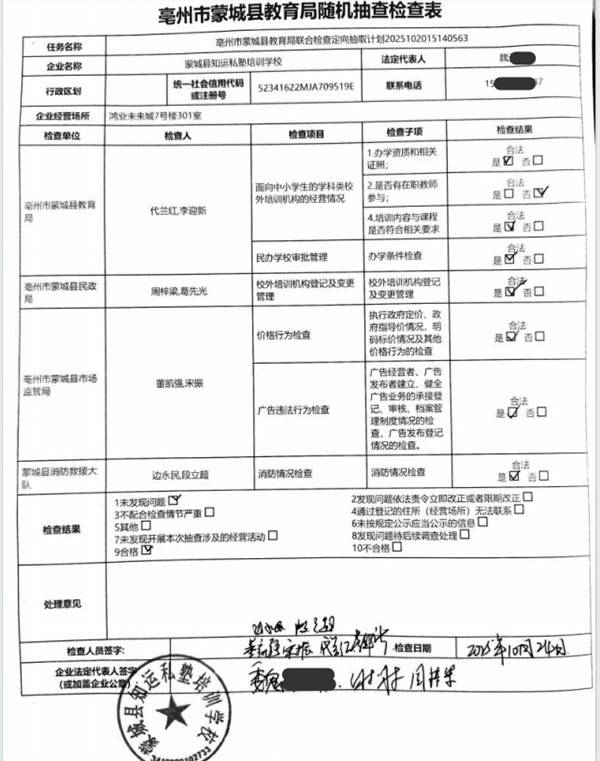 亳州市蒙城县教育局随机抽查检查表
任务名称 亳州市蒙城县教育局联合检查定向抽取计划2025102015140563
企业名称 蒙城县知运私塾培训学校 法定代表人 魏
行政区划 统一社会信用代码 52341622MJA709519E 联系电话 15 37
或注册号
企业经营场所 鸿业未来城7号楼301室
检查单位 检查人 检查项目 检查子项 检查结果
亳州市蒙城县教育
局
代兰红,李迎新
面向中小学生的学科类校
外培训机构的经营情况
1.办学资质和相关
证照;
合法
是☑ 否☐
2.是否有在职教师
参与;
合法
是☐ 否☑
4.培训内容与课程
是否符合相关要求
合法
是☑ 否☐
民办学校审批管理 办学条件检查
合法
是☑ 否☐
亳州市蒙城县民政
局
周梓梁,葛先光
校外培训机构登记及变更
管理
校外培训机构登记
及变更管理
合法
是☑ 否☐
亳州市蒙城县市场
监管局
董凯强,宋振
价格行为检查
执行政府定价、政
府指导价情况，明
码标价情况及其他
价格行为的检查
合法
是☑ 否☐
广告违法行为检查
广告经营者、广告
发布者建立、健全
广告业务的承接登
记、审核、档案管
理制度情况的检
查，广告发布登记
情况的检查。
合法
是☑ 否☐
蒙城县消防救援大
队
边永民,段立超
消防情况检查 消防情况检查
合法
是☑ 否☐
检查结果
1未发现问题☑ 2发现问题依法责令立即改正或者限期改正☐
3不配合检查情节严重☐ 4通过登记的住所（经营场所）无法联系☐
5其他☐ 6未按规定公示应当公示的信息☐
7未发现开展本次抽查涉及的经营活动☐ 8发现问题待后续调查处理☐
9合格☑ 10不合格☐
处理意见
检查人员签字: 检查日期 2025年10月24日
企业法定代表人签字
(或加盖企业公章)
蒙城县知运私塾培训学校